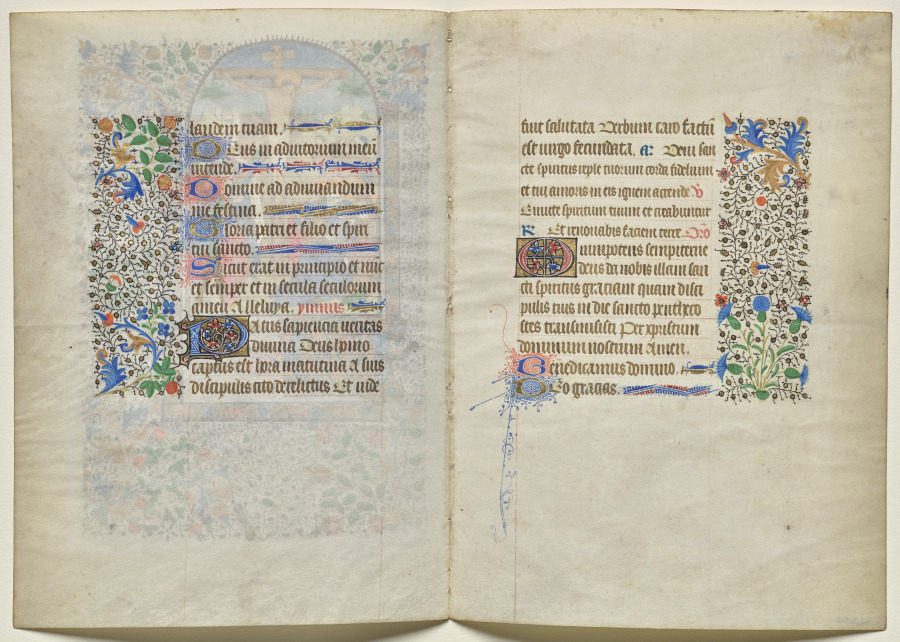 laudem tuam.
Deus in adiutorium meū
intende.
Domine ad adiuuandum
me festina.
Gloria patri et filio et spiri
tui sancto.
Sicut erat in principio et nūc
et semper et in secula seculorum
amen Alleluya. ymnus
Patris sapiencia ueritas
diuina Deus homo
captus est hora matutina A suis
discipulis cito derelictus Et iude
fuit salutata Verbum caro factū
est uirgo fecundata. a: Veni san
cte spiritus reple tuorum corda fidelium
et tui amoris in eis ignem accende V
Emitte spiritum tuum et creabuntur
R Et renouabis faciem terre. Orō
Omnipotens sempiterne
deus da nobis illam san
cti spiritus graciam quam disci
pulis tuis in die sancto pentheco
stes transmisisti Per xpistum
dominum nostrum Amen.
Benedicamus domino.
Deo gracias.